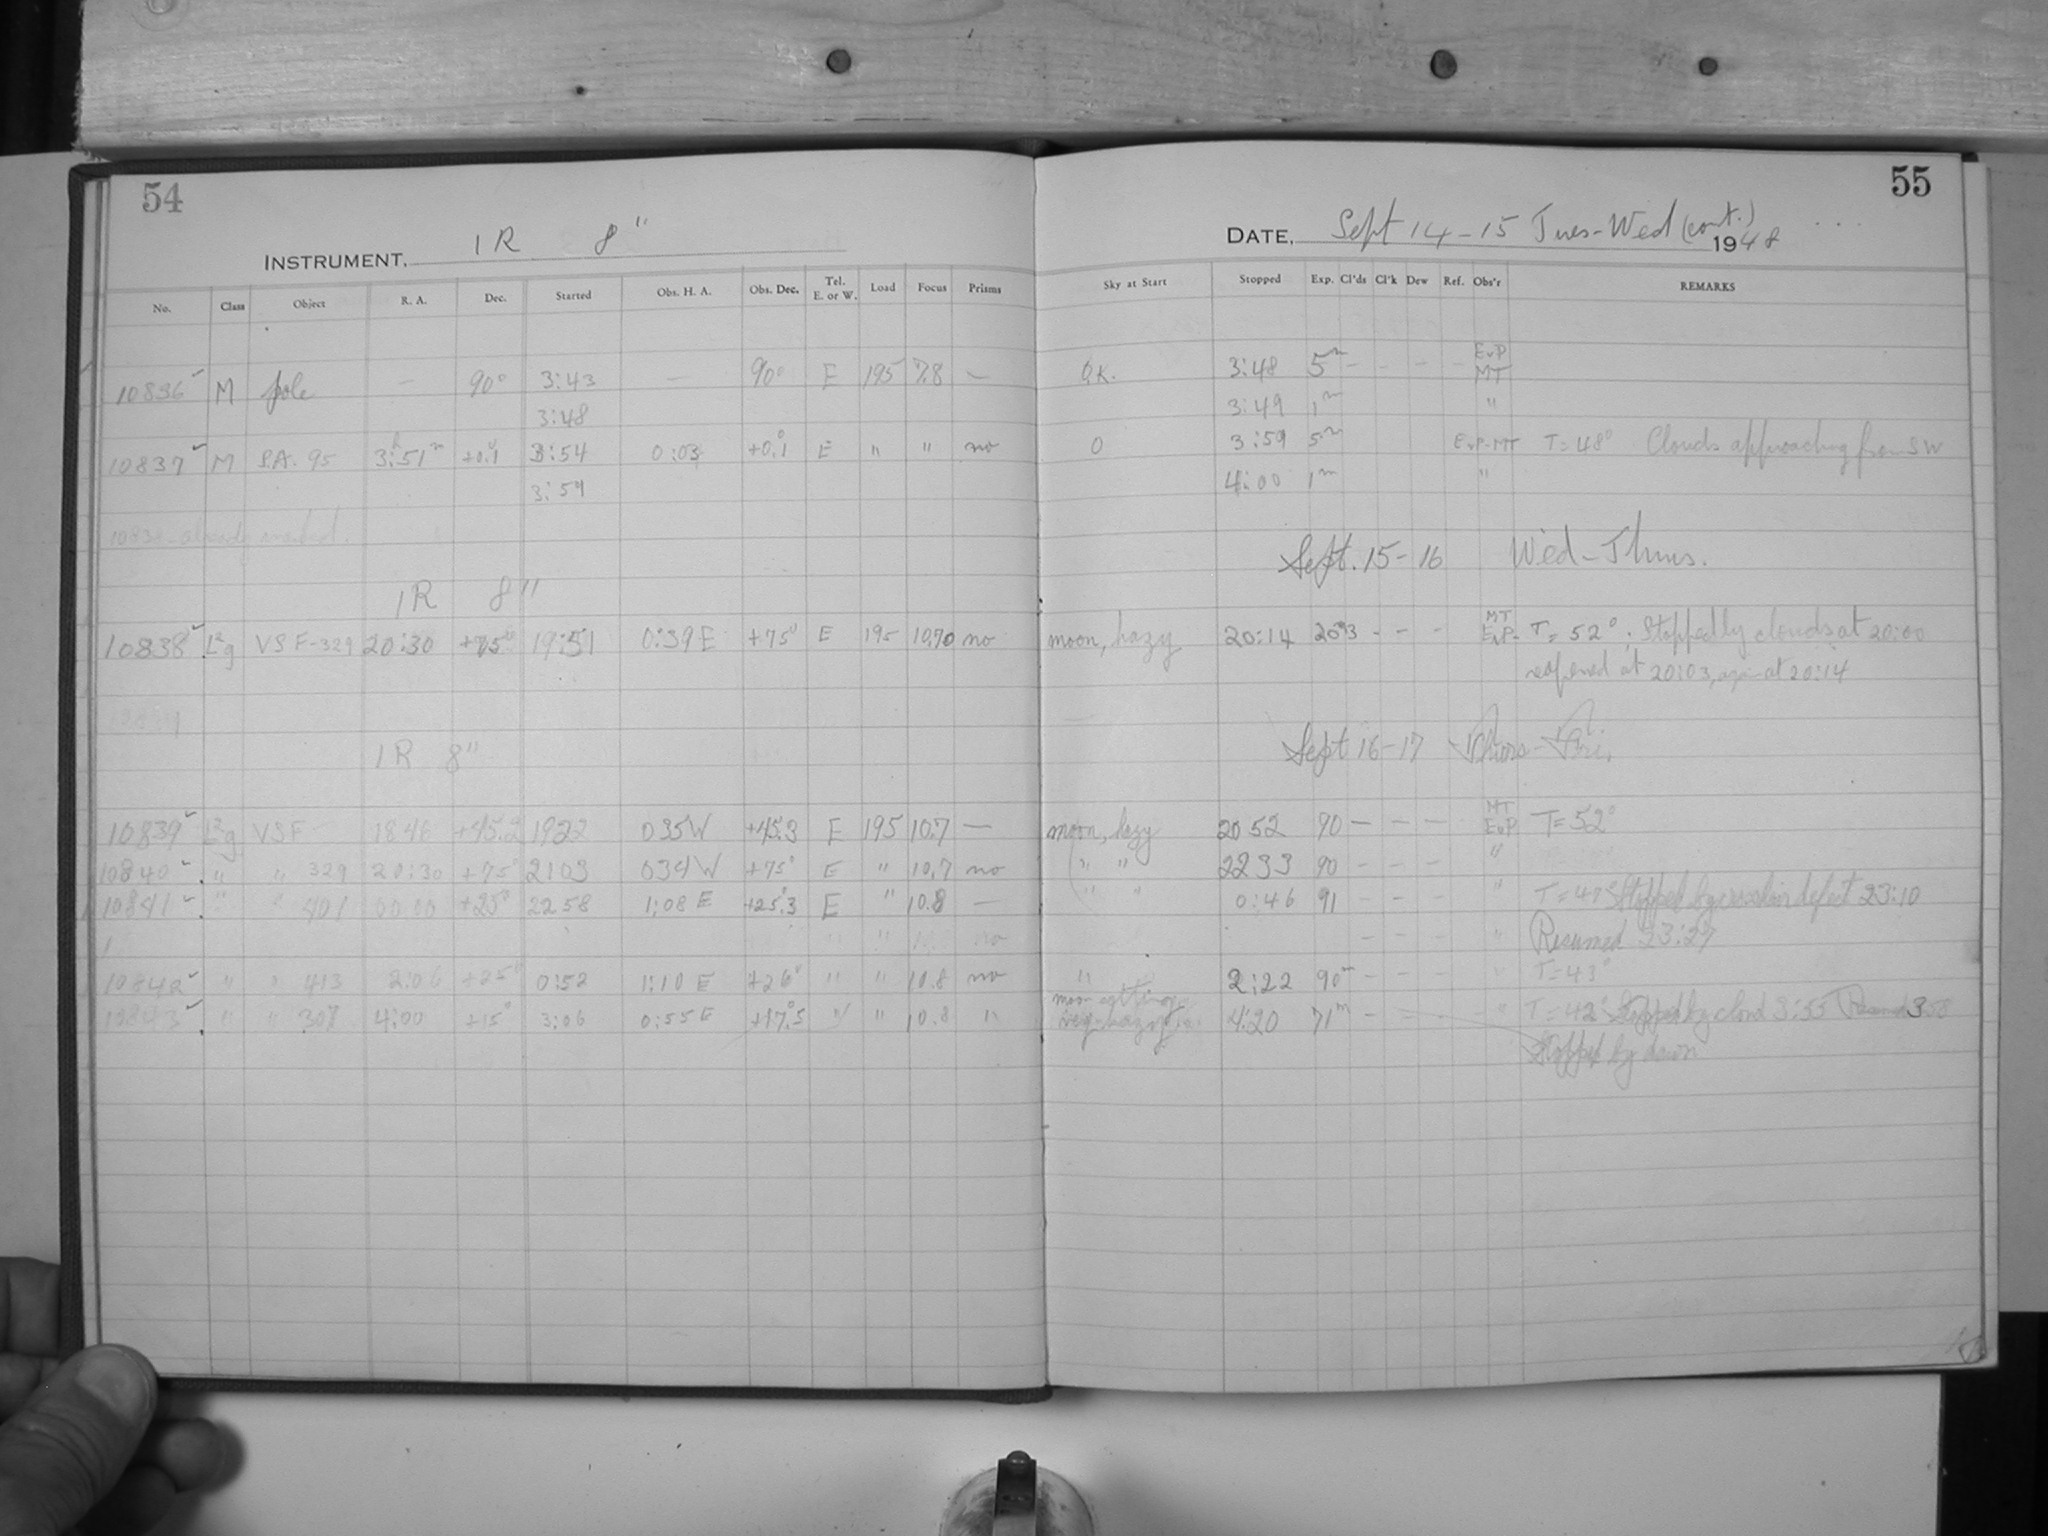 54
INSTRUMENT. 1R 8"
No. Class Object R. A. Dec. Started Obs. H. A. Obs. Dec. Tel. E. or W. Load Focus Prisms
10836 M pole — 90° 3:43 — 90° E 195 7.8 —
3:48
10837 M S.A. 95 3h51m +0.1 3:54 0:03 +0.1 E " " no
3:59
10838 already marked.
1R 8"
10838 L2g VSF-329 20:30 +75° 19:51 0:39E +75° E 195 10.70 no
1R 8"
10839 L2g VSF 1846 +45.2 1922 035W +45.3 E 195 10.7 —
10840 " " 329 20:30 +75° 2103 034W +75° E " 10.7 no
10841 " " 401 00 00 +25° 2258 1:08 E +25.3 E " 10.8 —
" " no
10842 " " 413 2:06 +25° 0:52 1:10 E +26° " " 10.8 no
10843 " " 308 4:00 +15° 3:06 0:55E +17.5 " " 10.8 "
55
DATE, Sept 14-15 Tues-Wed (cont.) 1948
Sky at Start Stopped Exp. Cl'ds Cl'k Dew Ref. Obs'r REMARKS
O.K. 3:48 5m - - - - EvP MT
3:49 1m "
0 3:59 5m EvP-MT T=48° Clouds approaching from SW
4:00 1m "
Sept. 15-16 Wed-Thurs.
moon, hazy 20:14 - - - MT EvP- T= 52°. Stopped by clouds at 20:00
reopened at 20:03, again at 20:14
Sept 16-17 Thurs-Fri.
moon, hazy 2052 90 — — — MT EvP T=52°
" " 2233 90 - - - "
" " 0:46 91 - - - " Stopped by defect 23:10
- - - " Resumed 23:27
" 2:22 90m - - - " T=43°
moon setting
very hazy 4:20 71m - - - " T=42° Stopped by cloud 3:55 Resumed 358
Stopped by dawn